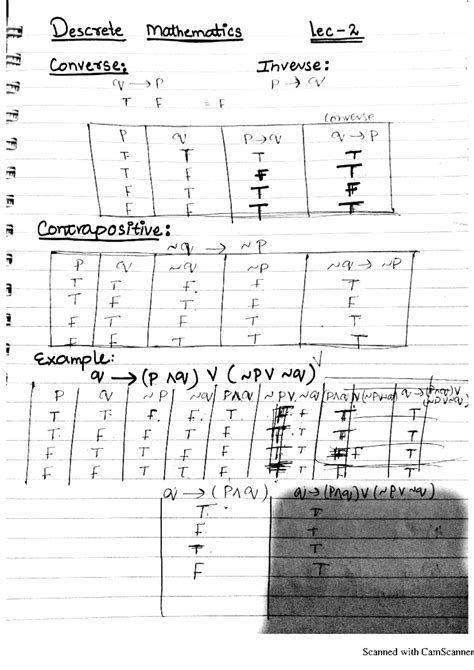 Descrete Mathematics lec-2
Converse: Inverse:
q → P P → q
T F = F
converse
P q P→q q→P
T T T T
T F F T
F T T F
F F T T
Contrapositive:
~q → ~P
P q ~q ~P ~q → ~P
T T F F T
T F T F F
F T F T T
F F T T T
Example:
q → (P ∧ q) ∨ (~P ∨ ~q)
P q ~P ~q P∧q ~PV~q (P∧q)V(~PV~q) q→(P∧q)V
(~PV~q)
T T F F T F T T
T F F T F T T T
F T T F F T T
F F T T F T T T
q → (P∧q) q→(P∧q)V(~PV~q)
T T
F T
T T
F T
Scanned with CamScanner